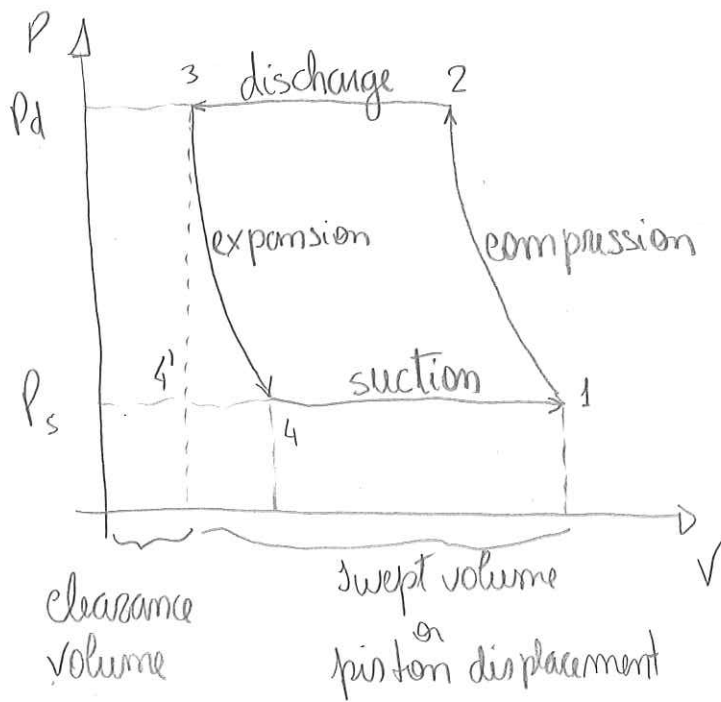 P
3 discharge 2
Pd
expansion
compression
4'
suction
1
Ps
4
V
clearance
volume
swept volume
or
piston displacement